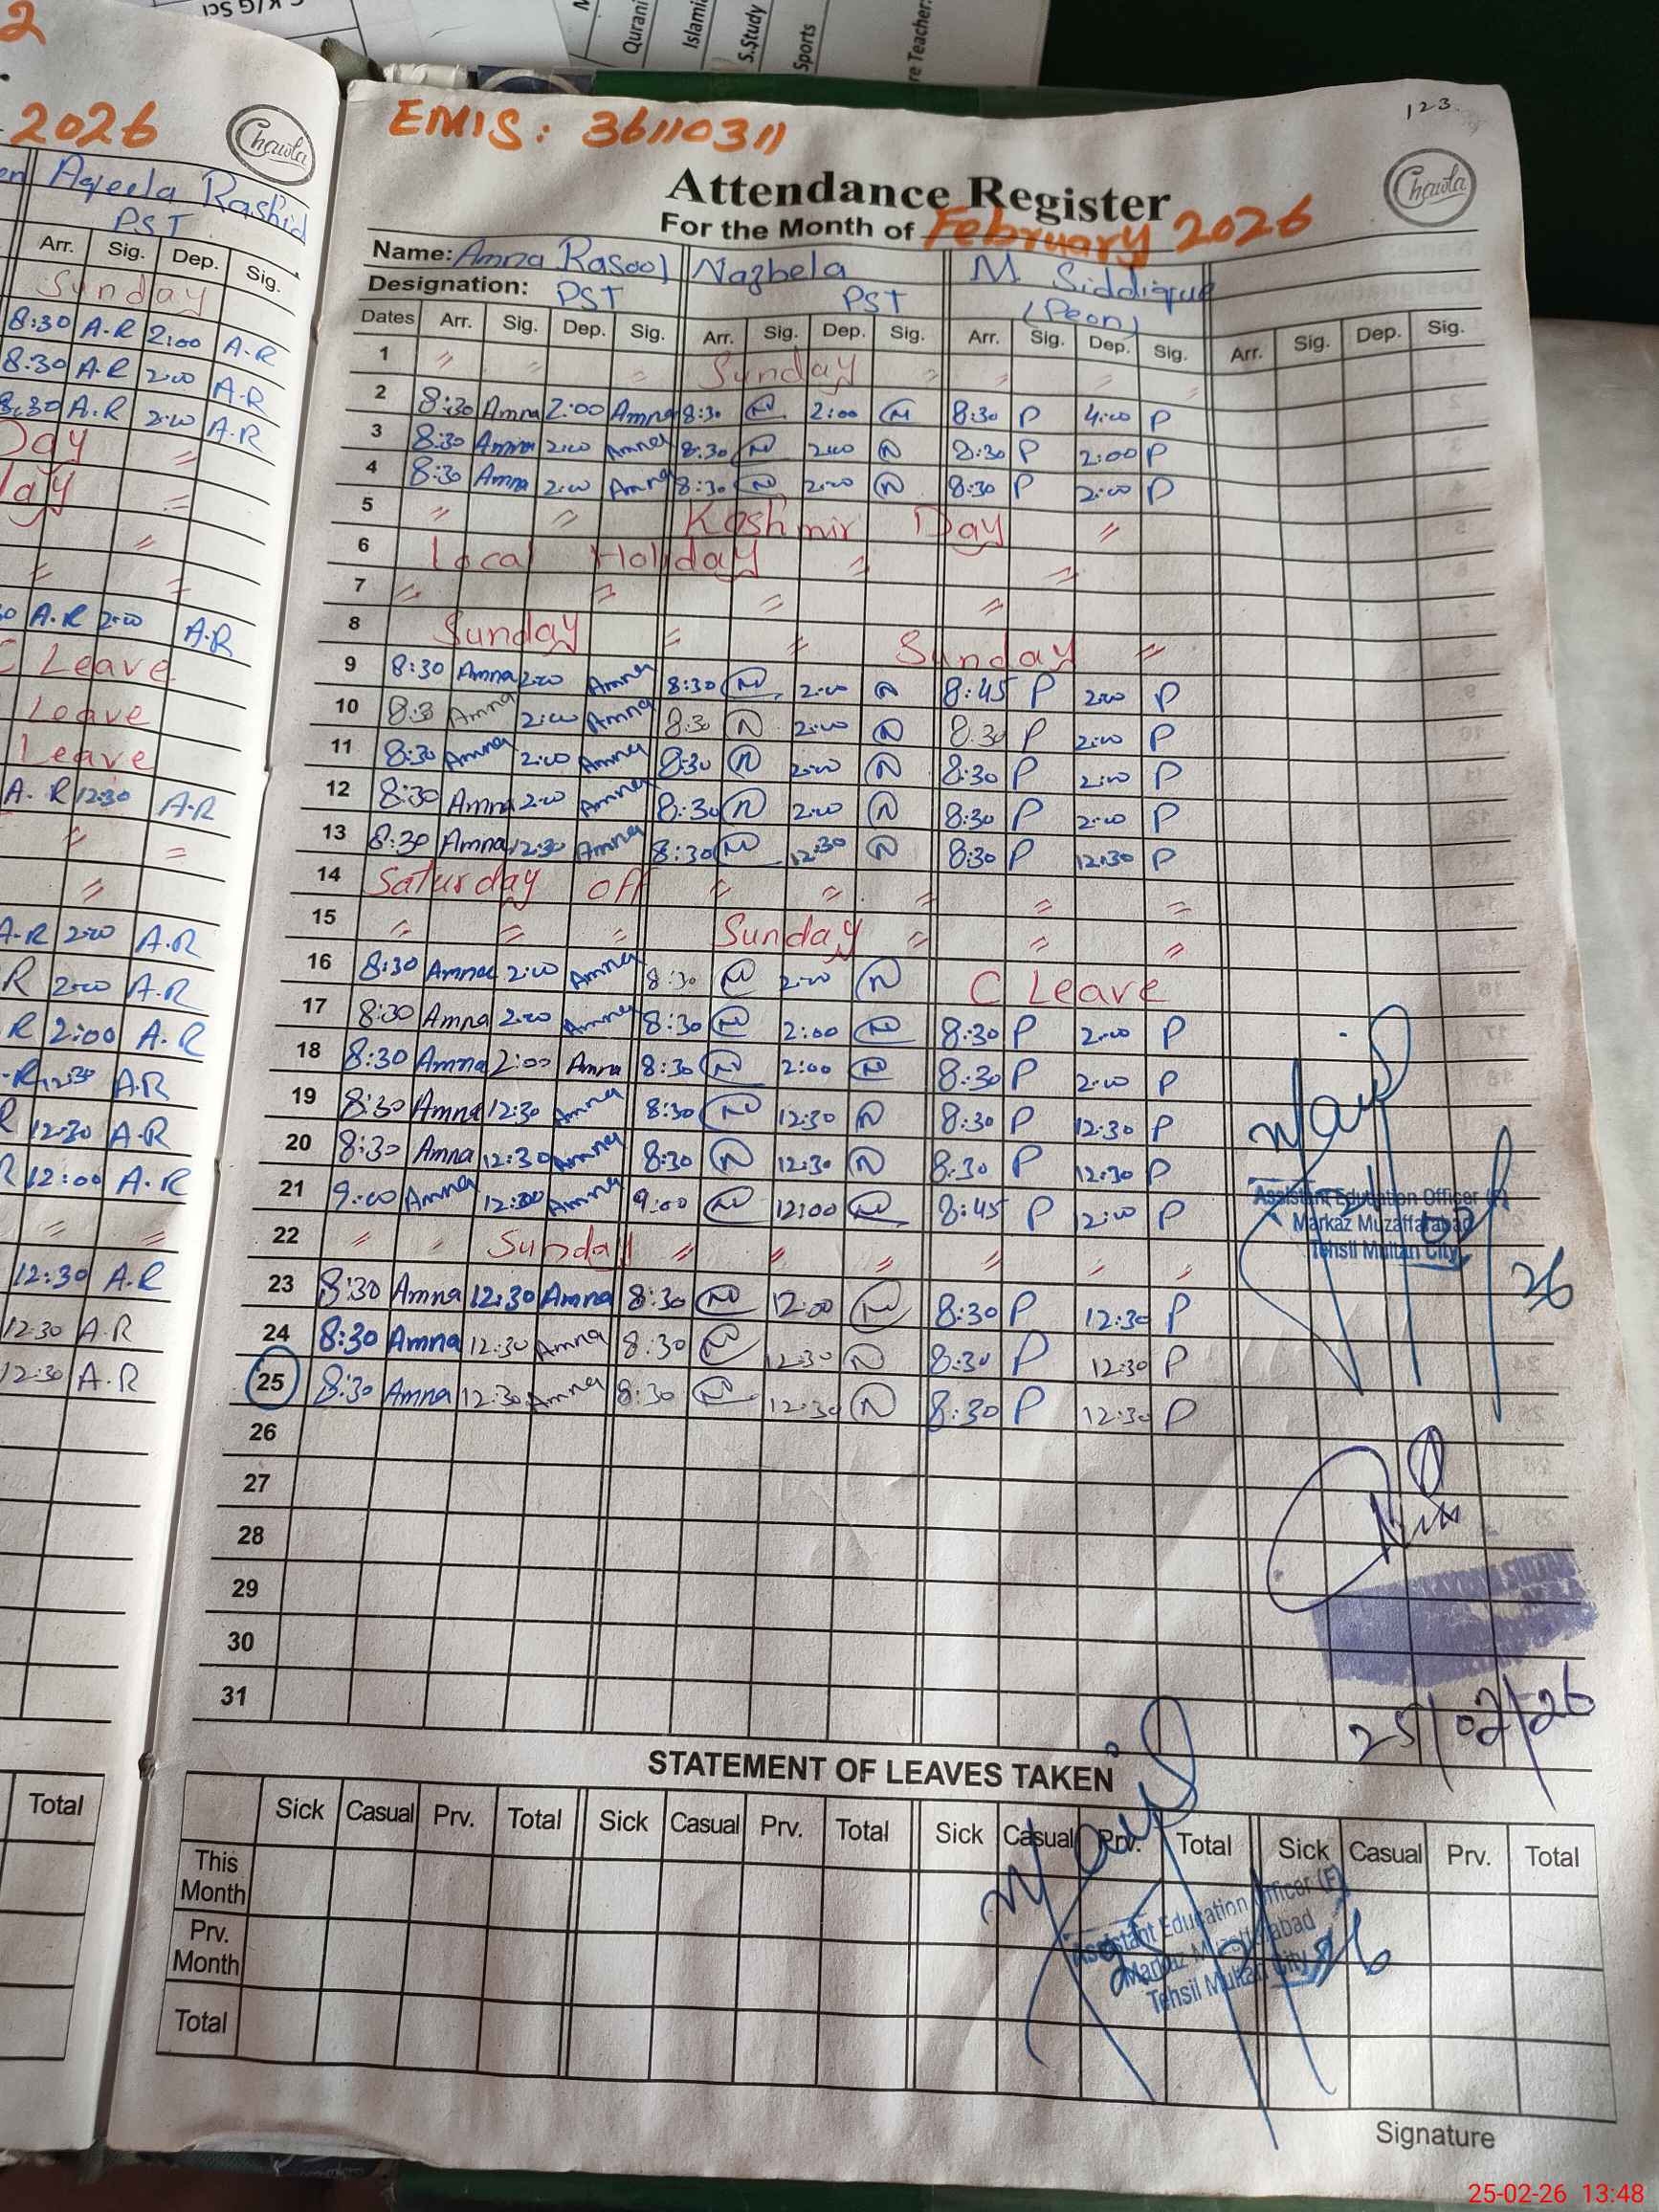 2
2026
Chawla
Aqeela Rashid
PST
Arr. Sig. Dep. Sig.
Sunday
8:30 A.R 2:00 A.R
8:30 A.R 2:00 A.R
8:30 A.R 2:00 A.R
Day
A.R 2:00 A.R
C Leave
Leave
Leave
A.R 12:30 A.R
A.R 2:00 A.R
R 2:00 A.R
R 2:00 A.R
R 12:30 A.R
R 12:30 A.R
R 12:00 A.R
12:30 A.R
12:30 A.R
12:30 A.R
Total
Qurani
Islami
S.Study
Sports
re Teacher
123.
EMIS: 36110311
Chawla
Attendance Register
For the Month of February 2026
Name: Amna Rasool Nazbela M. Siddique
Designation: PST PST (Peon)
Dates Arr. Sig. Dep. Sig. Arr. Sig. Dep. Sig. Arr. Sig. Dep. Sig. Arr. Sig. Dep. Sig.
1 " " " Sunday " " " "
2 8:30 Amna 2:00 Amna 8:30 N 2:00 N 8:30 P 4:00 P
3 8:30 Amna 2:00 Amna 8:30 N 2:00 N 8:30 P 2:00 P
4 8:30 Amna 2:00 Amna 8:30 N 2:00 N 8:30 P 2:00 P
5 " " Kashmir Day "
6 Local Holiday " "
7 " " " "
8 Sunday " " Sunday "
9 8:30 Amna 2:00 Amna 8:30 N 2:00 N 8:45 P 2:00 P
10 8:3 Amna 2:00 Amna 8:30 N 2:00 N 8:30 P 2:00 P
11 8:30 Amna 2:00 Amna 8:30 N 2:00 N 8:30 P 2:00 P
12 8:30 Amna 2:00 Amna 8:30 N 2:00 N 8:30 P 2:00 P
13 8:30 Amna 12:30 Amna 8:30 N 12:30 N 8:30 P 12:30 P
14 Saturday off " " " " "
15 " " " Sunday " " "
16 8:30 Amna 2:00 Amna 8:30 N 2:00 N C Leave
17 8:30 Amna 2:00 Amna 8:30 N 2:00 N 8:30 P 2:00 P
18 8:30 Amna 2:00 Amna 8:30 N 2:00 N 8:30 P 2:00 P
19 8:30 Amna 12:30 Amna 8:30 N 12:30 N 8:30 P 12:30 P
20 8:30 Amna 12:30 Amna 8:30 N 12:30 N 8:30 P 12:30 P
21 9:00 Amna 12:00 Amna 9:00 N 12:00 N 8:45 P 12:00 P
22 " " Sunday " " " " " "
23 8:30 Amna 12:30 Amna 8:30 N 12:00 N 8:30 P 12:30 P
24 8:30 Amna 12:30 Amna 8:30 N 12:30 N 8:30 P 12:30 P
25 8:30 Amna 12:30 Amna 8:30 N 12:30 N 8:30 P 12:30 P
26
27
28
29
30
31
Assistant Education Officer (F)
Markaz Muzaffarabad
Tehsil Multan City
26
25/02/26
STATEMENT OF LEAVES TAKEN
Sick Casual Prv. Total Sick Casual Prv. Total Sick Casual Prv. Total Sick Casual Prv. Total
This Month
Prv. Month
Total
Assistant Education Officer (F)
Markaz Muzaffarabad
Tehsil Multan City
Signature
25-02-26 13:48